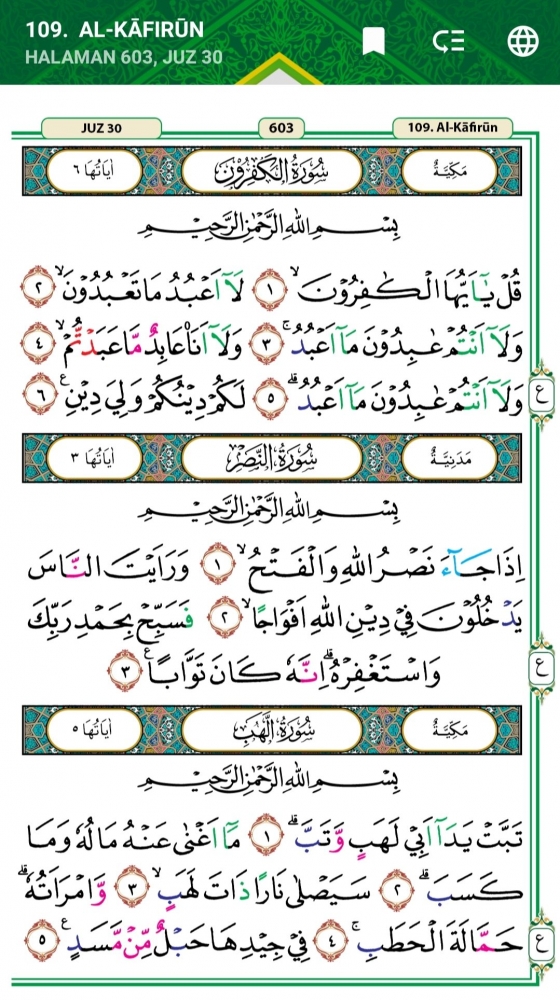 109. AL-KĀFIRŪN
HALAMAN 603, JUZ 30
JUZ 30
603
109. Al-Kāfirūn
مَكِّيَّةٌ سُوْرَةُ الْكٰفِرُوْنَ اٰيَاتُهَا ٦
بِسْمِ اللّٰهِ الرَّحْمٰنِ الرَّحِيْمِ
قُلْ يٰٓاَيُّهَا الْكٰفِرُوْنَۙ ١ لَآ اَعْبُدُ مَا تَعْبُدُوْنَۙ ٢
وَلَآ اَنْتُمْ عٰبِدُوْنَ مَآ اَعْبُدُۚ ٣ وَلَآ اَنَا۠ عَابِدٌ مَّا عَبَدْتُّمْۙ ٤
وَلَآ اَنْتُمْ عٰبِدُوْنَ مَآ اَعْبُدُۗ ٥ لَكُمْ دِيْنُكُمْ وَلِيَ دِيْنِࣖ ٦
ع
مَدَنِيَّةٌ سُوْرَةُ النَّصْرِ اٰيَاتُهَا ٣
بِسْمِ اللّٰهِ الرَّحْمٰنِ الرَّحِيْمِ
اِذَا جَاۤءَ نَصْرُ اللّٰهِ وَالْفَتْحُۙ ١ وَرَاَيْتَ النَّاسَ
يَدْخُلُوْنَ فِيْ دِيْنِ اللّٰهِ اَفْوَاجًاۙ ٢ فَسَبِّحْ بِحَمْدِ رَبِّكَ
وَاسْتَغْفِرْهُۗ اِنَّهٗ كَانَ تَوَّابًاࣖ ٣
ع
مَكِّيَّةٌ سُوْرَةُ اللَّهَبِ اٰيَاتُهَا ٥
بِسْمِ اللّٰهِ الرَّحْمٰنِ الرَّحِيْمِ
تَبَّتْ يَدَآ اَبِيْ لَهَبٍ وَّتَبَّۗ ١ مَآ اَغْنٰى عَنْهُ مَالُهٗ وَمَا
كَسَبَۗ ٢ سَيَصْلٰى نَارًا ذَاتَ لَهَبٍۙ ٣ وَّامْرَاَتُهٗۗ
حَمَّالَةَ الْحَطَبِۚ ٤ فِيْ جِيْدِهَا حَبْلٌ مِّنْ مَّسَدٍࣖ ٥
ع